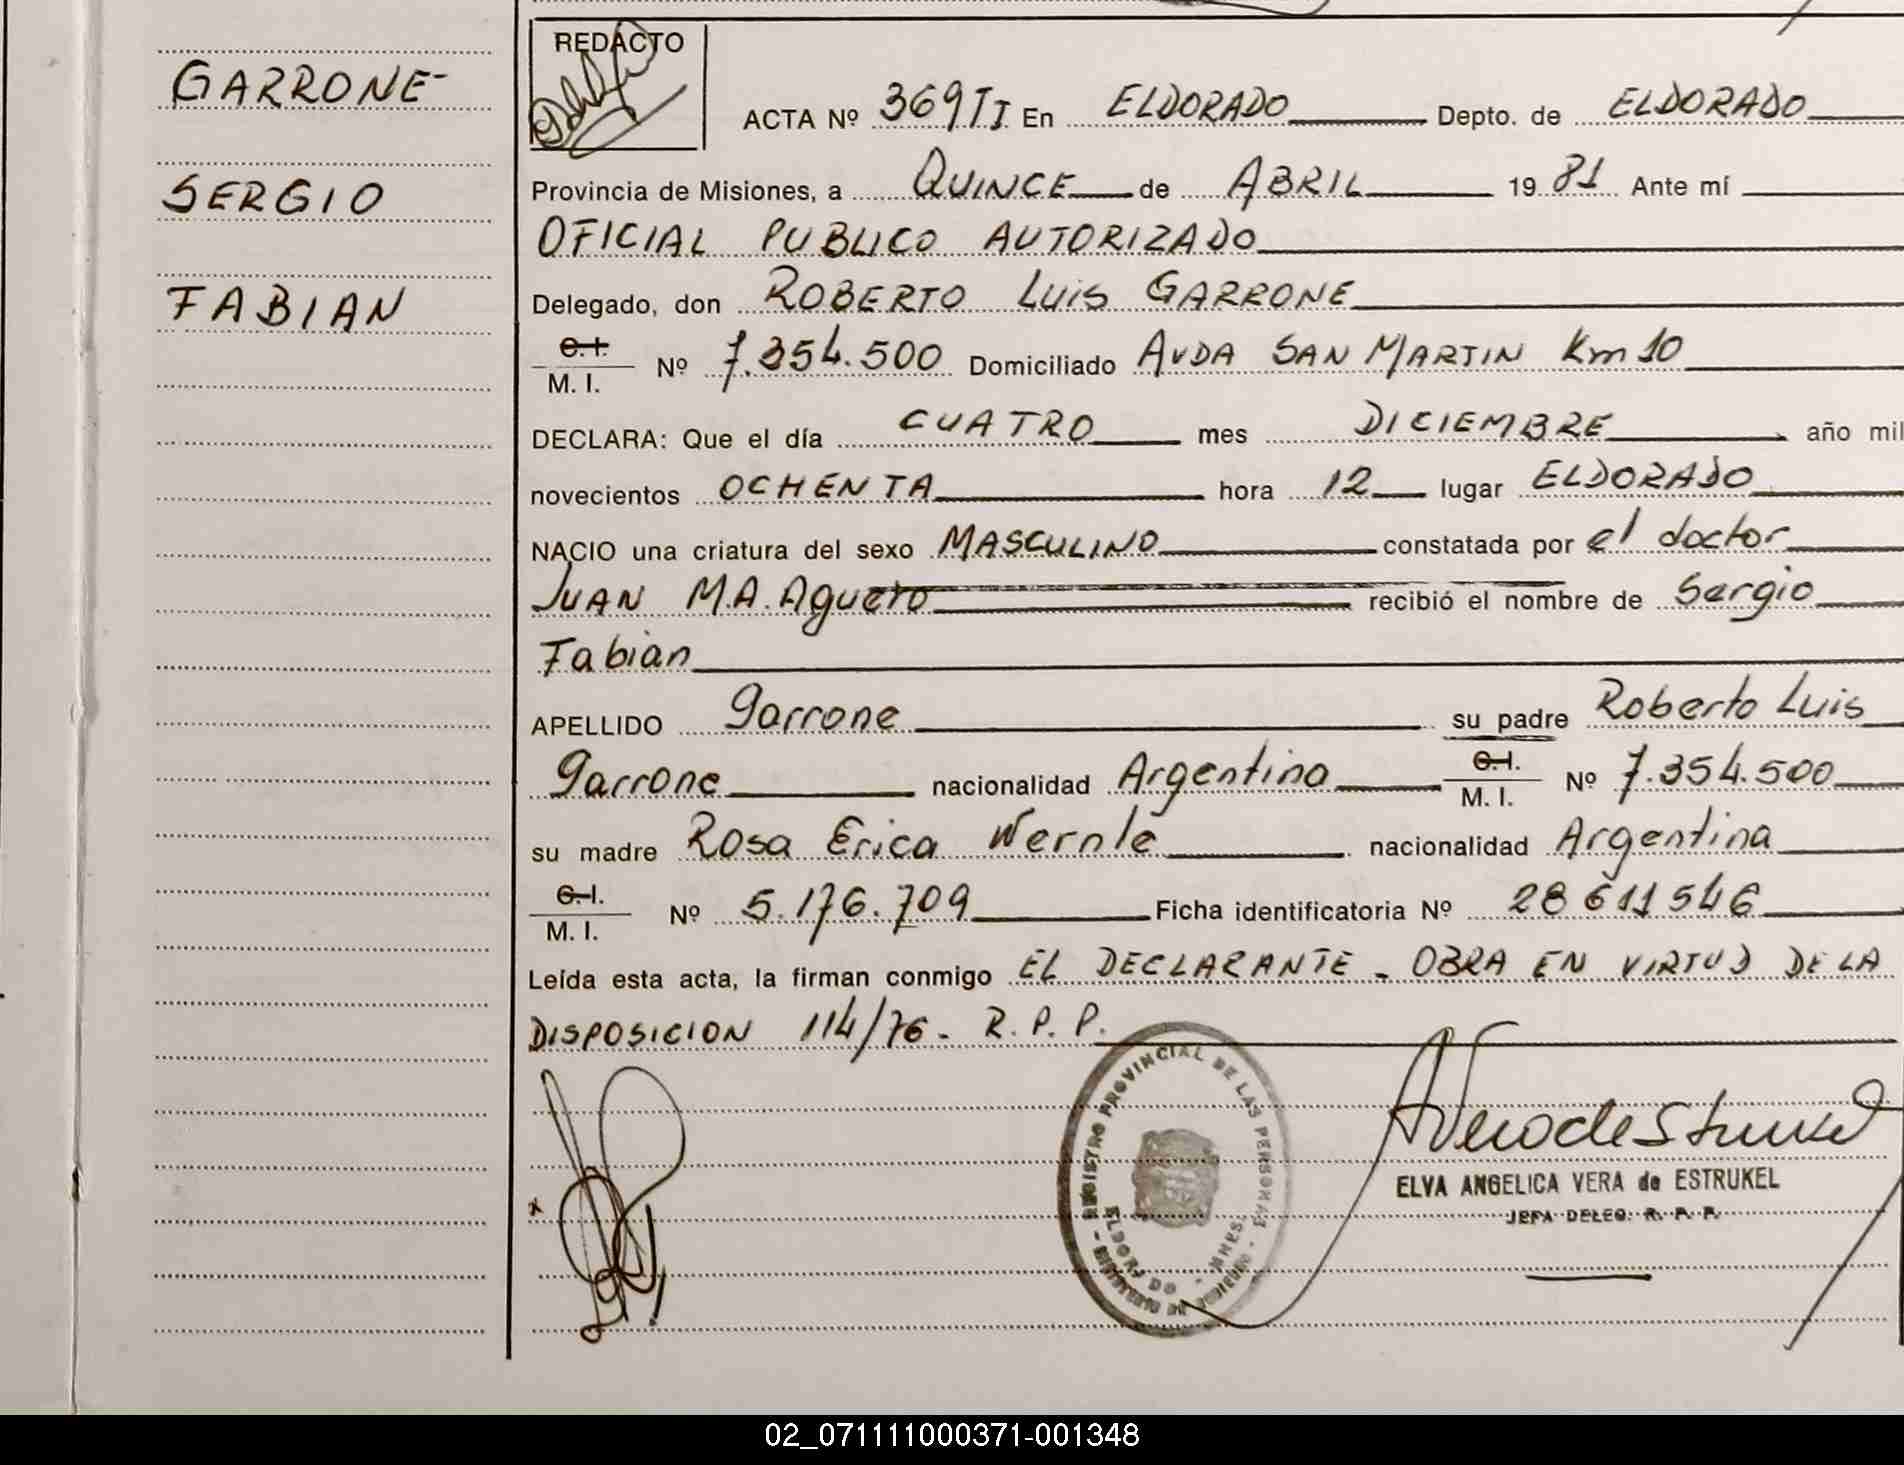 GARRONE-
SERGIO
FABIAN
REDACTO
ACTA Nº 369TI En ELDORADO Depto. de ELDORADO
Provincia de Misiones, a QUINCE de ABRIL 19 81 Ante mí
OFICIAL PUBLICO AUTORIZADO
Delegado, don ROBERTO LUIS GARRONE
C.I.
M. I. Nº 7.354.500 Domiciliado AVDA SAN MARTIN Km 10
DECLARA: Que el día CUATRO mes DICIEMBRE año mil
novecientos OCHENTA hora 12 lugar ELDORADO
NACIO una criatura del sexo MASCULINO constatada por el doctor
JUAN M.A. Aguero recibió el nombre de Sergio
Fabián
APELLIDO Garrone su padre Roberto Luis
Garrone nacionalidad Argentino C.I. M. I. Nº 7.354.500
su madre Rosa Erica Wernle nacionalidad Argentina
C.I.
M. I. Nº 5.176.709 Ficha identificatoria Nº 28 611 546
Leída esta acta, la firman conmigo EL DECLARANTE - OBRA EN VIRTUD DE LA
DISPOSICION 114/76- R. P. P.
REGISTRO PROVINCIAL DE LAS PERSONAS
ELDORADO - MNES.
ELVA ANGELICA VERA de ESTRUKEL
JEFA DELEG. R. P. P.
02_071111000371-001348